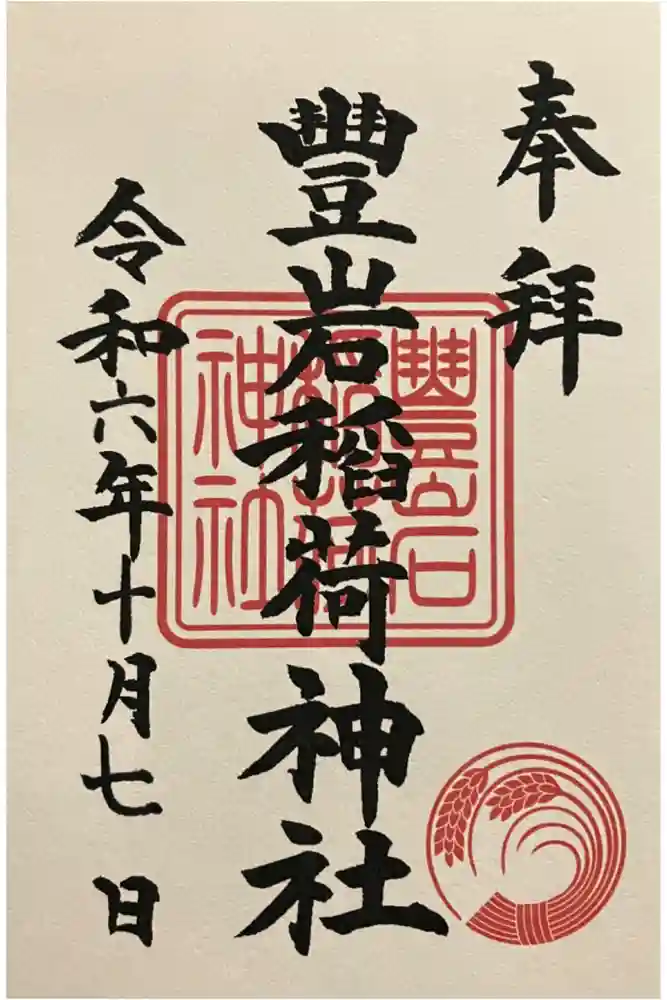 奉拝
豐岩稲荷神社
令和六年十月七日
豐岩
稲荷
神社